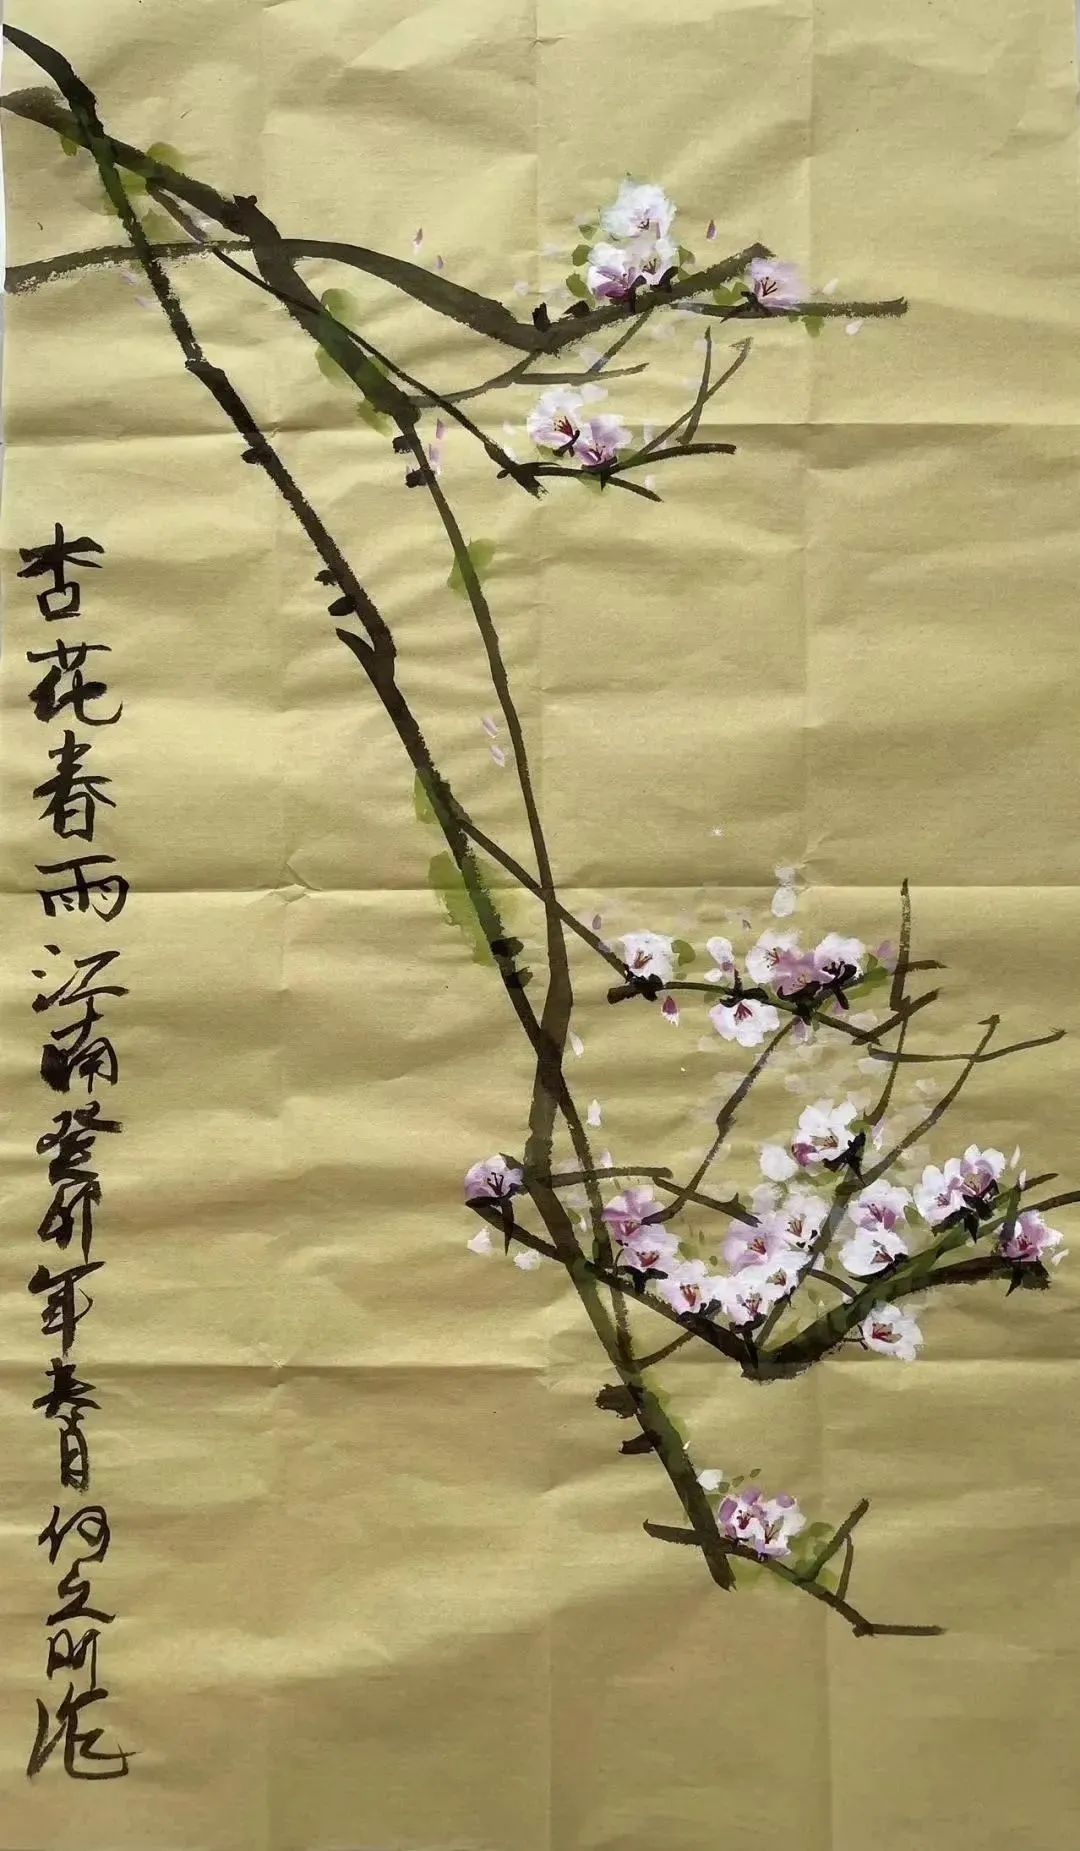 杏花春雨江南癸卯年春月何之明作